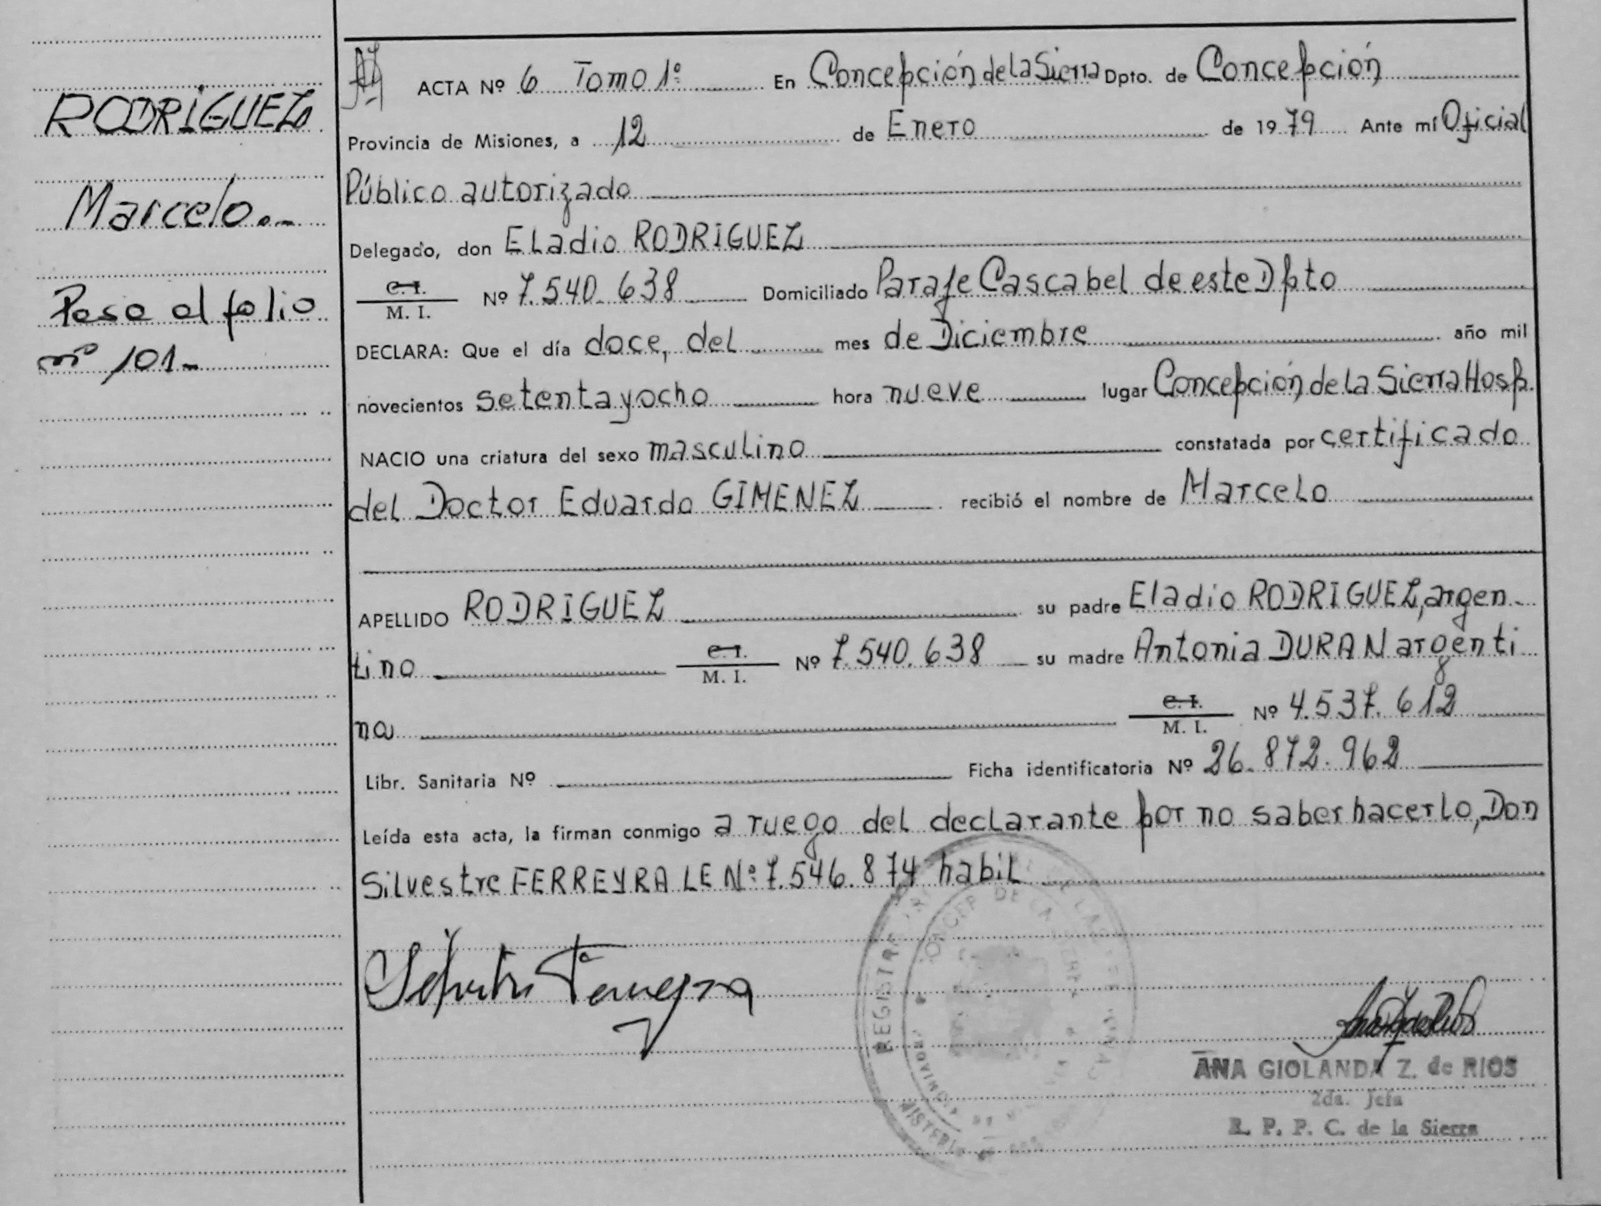 RODRIGUEZ
Marcelo.-
Pasa al folio
nº 101-
ACTA Nº 6 Tomo 1º En Concepción de la Sierra Dpto. de Concepción
Provincia de Misiones, a 12 de Enero de 1979 Ante mí Oficial
Público autorizado
Delegado, don Eladio RODRIGUEZ
C. I.
M. I. Nº 7.540.638 Domiciliado Paraje Cascabel de este Dpto
DECLARA: Que el día doce, del mes de Diciembre año mil
novecientos setenta y ocho hora nueve lugar Concepción de la Sierra Hosp.
NACIO una criatura del sexo masculino constatada por certificado
del Doctor Eduardo GIMENEZ recibió el nombre de Marcelo
APELLIDO RODRIGUEZ su padre Eladio RODRIGUEZ, argen-
tino C. I. M. I. Nº 7.540.638 su madre Antonia DURAN argenti
na C. I. M. I. Nº 4.537.612
Libr. Sanitaria Nº Ficha identificatoria Nº 26.872.962
Leída esta acta, la firman conmigo a ruego del declarante por no saber hacerlo, Don
Silvestre FERREYRA LE Nº 7.546.874 habil
ANA GIOLANDA Z. de RIOS
2da. Jefa
R. P. P. C. de la Sierra